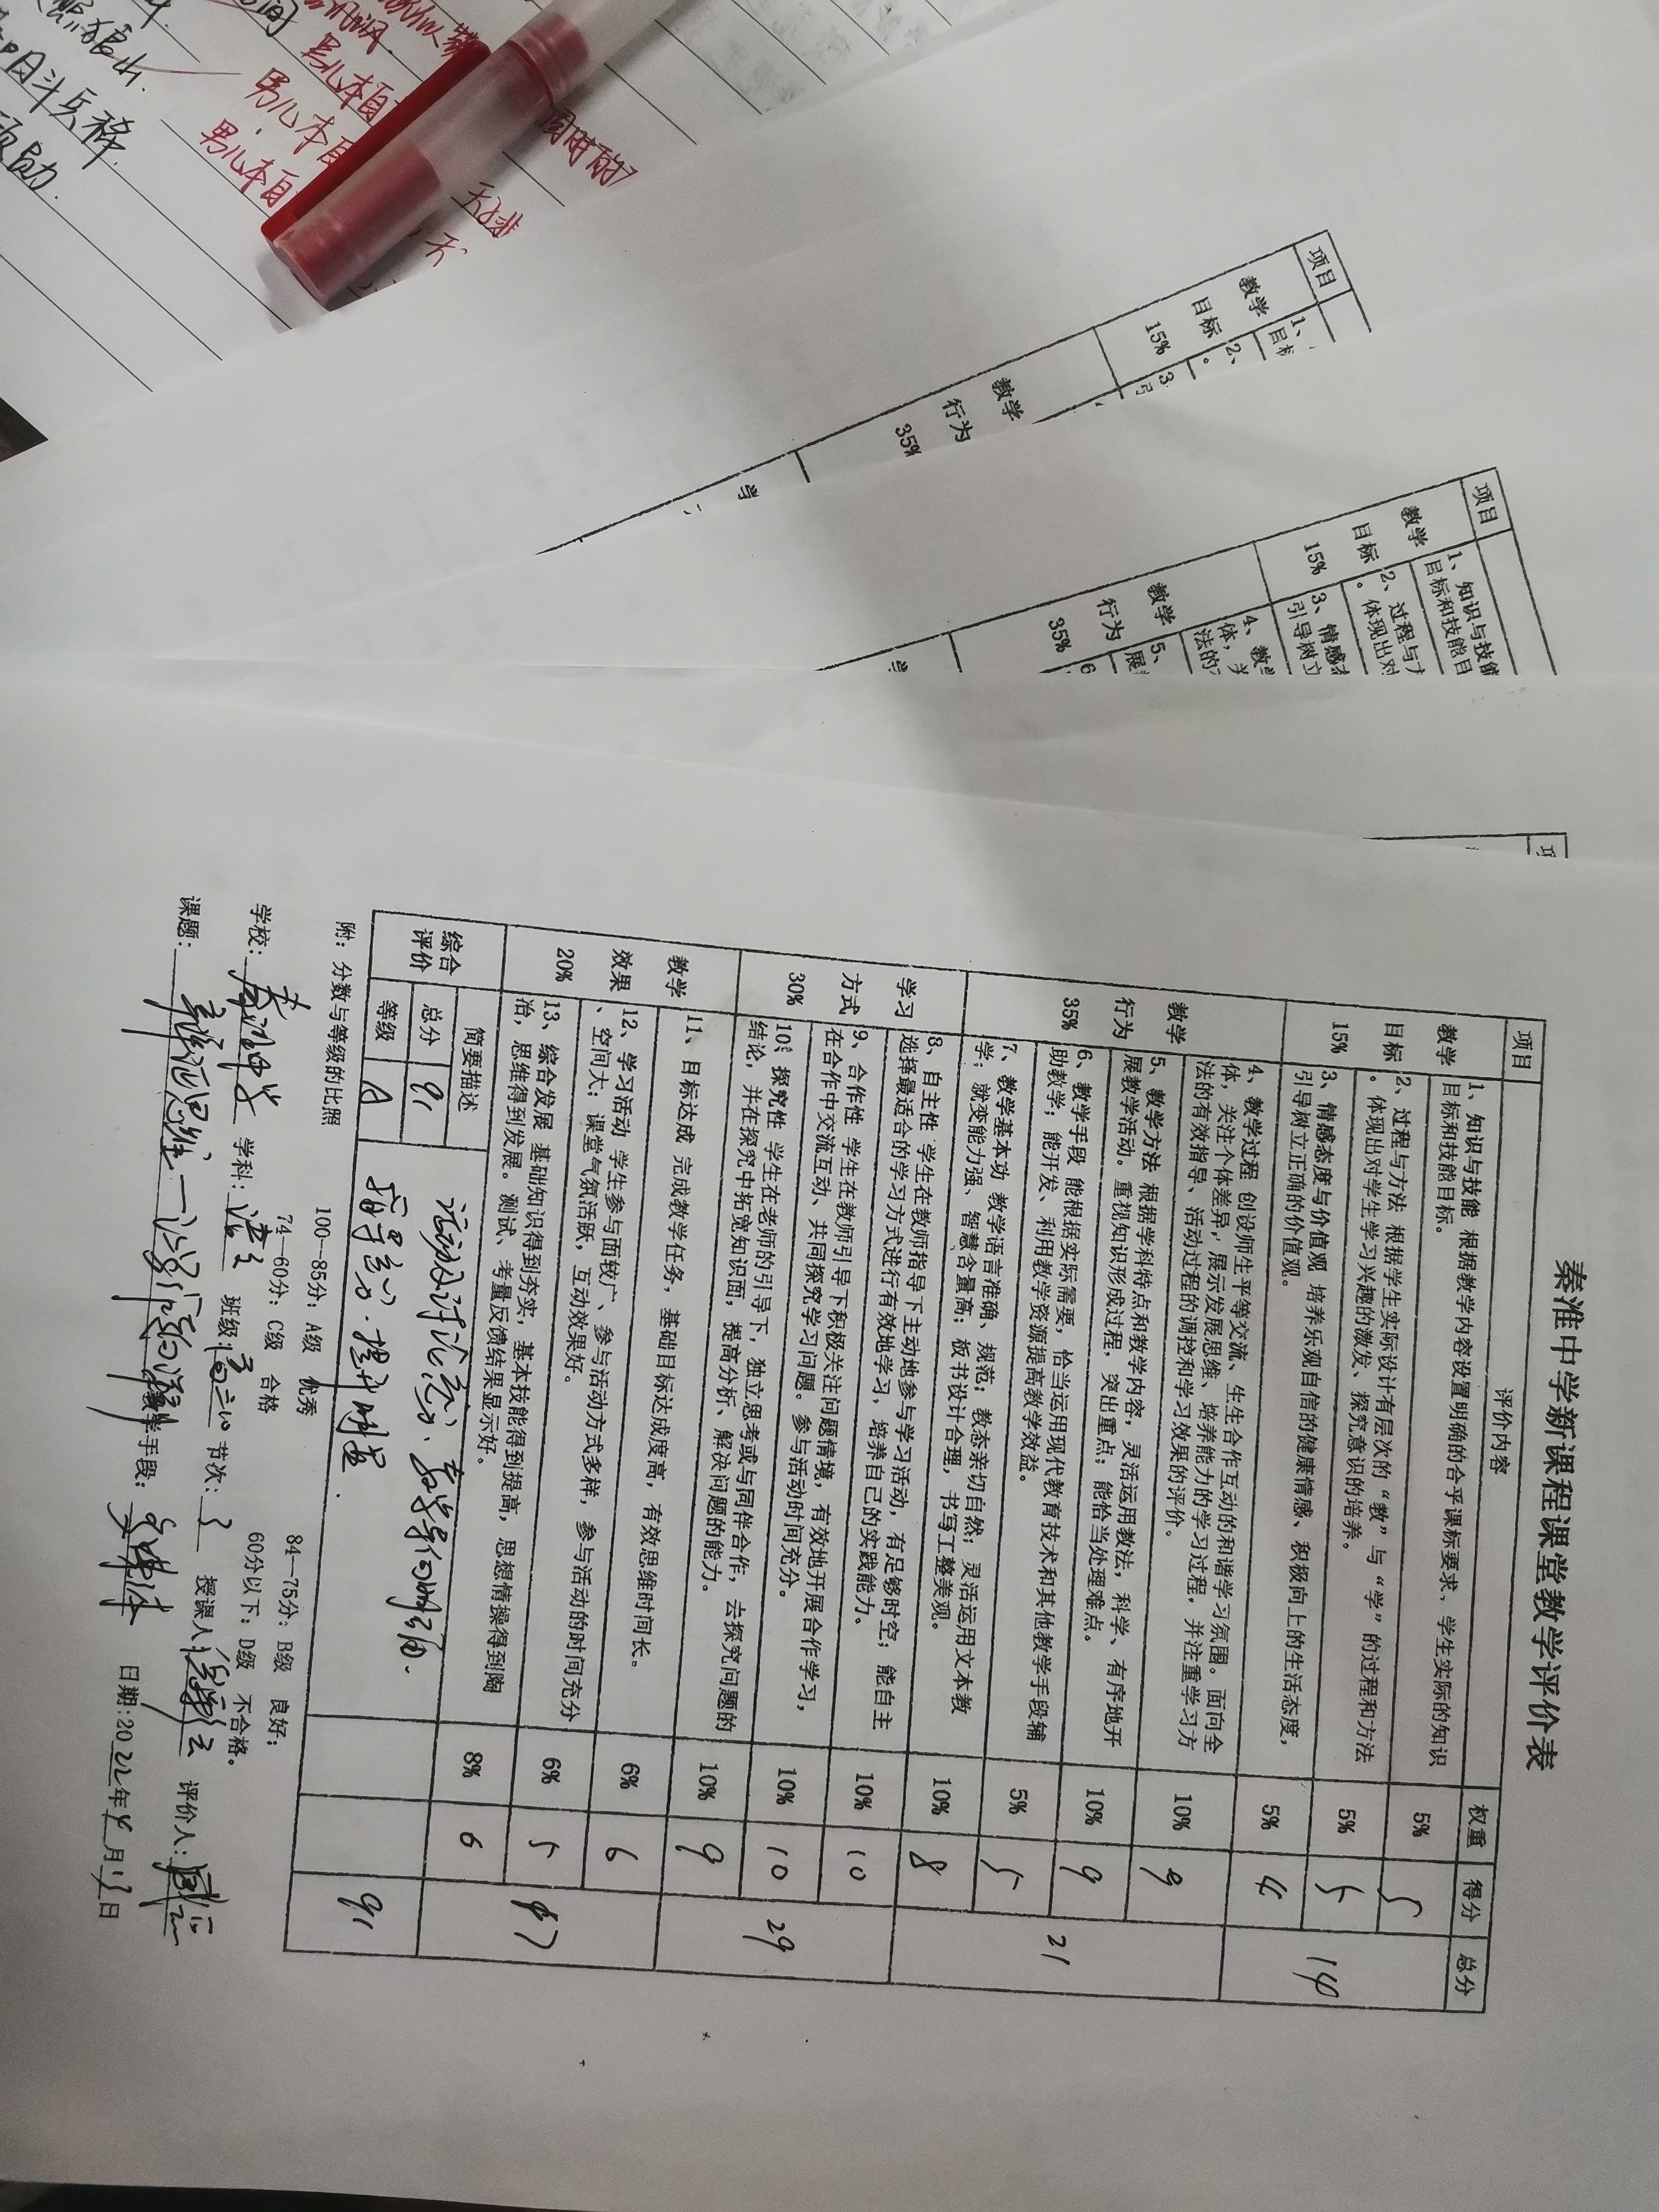 秦淮中学新课程课堂教学评价表
项目 评价内容 权重 得分 总分
教学
目标
15%
1、知识与技能 根据教学内容设置明确的合乎课标要求、学生实际的知识
目标和技能目标。
5% 5
2、过程与方法 根据学生实际设计有层次的“教”与“学”的过程和方法
。体现出对学生学习兴趣的激发、探究意识的培养。
5% 5
3、情感态度与价值观 培养乐观自信的健康情感、积极向上的生活态度，
引导树立正确的价值观。
5% 4
14
教学
行为
35%
4、教学过程 创设师生平等交流、生生合作互动的和谐学习氛围。面向全
体，关注个体差异，展示发展思维、培养能力的学习过程，并注重学习方
法的有效指导、活动过程的调控和学习效果的评价。
10% 9
5、教学方法 根据学科特点和教学内容，灵活运用教法，科学、有序地开
展教学活动。重视知识形成过程，突出重点；能恰当处理难点。
10% 9
6、教学手段 能根据实际需要，恰当运用现代教育技术和其他教学手段辅
助教学；能开发、利用教学资源提高教学效益。
5% 5
7、教学基本功 教学语言准确、规范；教态亲切自然；灵活运用文本教
学；就变能力强、智慧含量高；板书设计合理，书写工整美观。
10% 8
21
学习
方式
30%
8、自主性 学生在教师指导下主动地参与学习活动，有足够时空；能自主
选择最适合的学习方式进行有效地学习，培养自己的实践能力。
10% 10
9、合作性 学生在教师引导下积极关注问题情境，有效地开展合作学习，
在合作中交流互动、共同探究学习问题。参与活动时间充分。
10% 10
10、探究性 学生在老师的引导下，独立思考或与同伴合作，去探究问题的
结论，并在探究中拓宽知识面，提高分析、解决问题的能力。
10% 9
29
教学
效果
20%
11、目标达成 完成教学任务，基础目标达成度高，有效思维时间长。
6% 6
12、学习活动 学生参与面较广、参与活动方式多样，参与活动的时间充分
、空间大；课堂气氛活跃，互动效果好。
6% 5
13、综合发展 基础知识得到夯实，基本技能得到提高，思想情操得到陶
冶，思维得到发展。测试、考量反馈结果显示好。
8% 6
17
综合
评价
简要描述
总分 91
等级 A
活动及讨论充分、教学导向明确.
指导充分.提升明显.
91
附：分数与等级的比照
100—85分：A级 优秀
84—75分：B级 良好；
74—60分：C级 合格
60分以下：D级 不合格。
学校：秦淮中学 学科：语文 班级 节次：3 授课人 评价人：
课题： 教学手段： 日期：2022年4月13日
项目
教学
目标
15%
1、知识与技能
目标和技能目
2、过程与方
。体现出对
3、情感态
引导树立
教学
行为
35%
4、教学
体，关
法的
5、
展
6
学
项目
教学
目标
15%
1、
目标
2、
。
3
引
教学
行为
35%
学
男儿本自
男儿本自
男儿本自